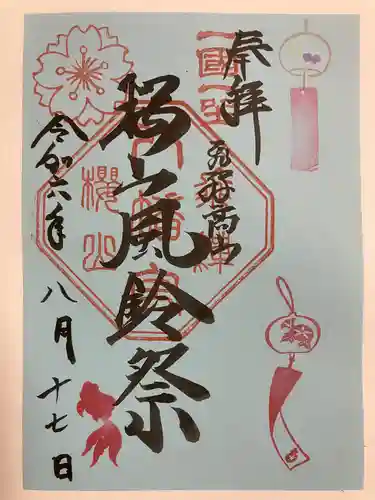 奉拝
飛騨高山
桜山風鈴祭
八幡宮
櫻山
令和六年 八月十七日